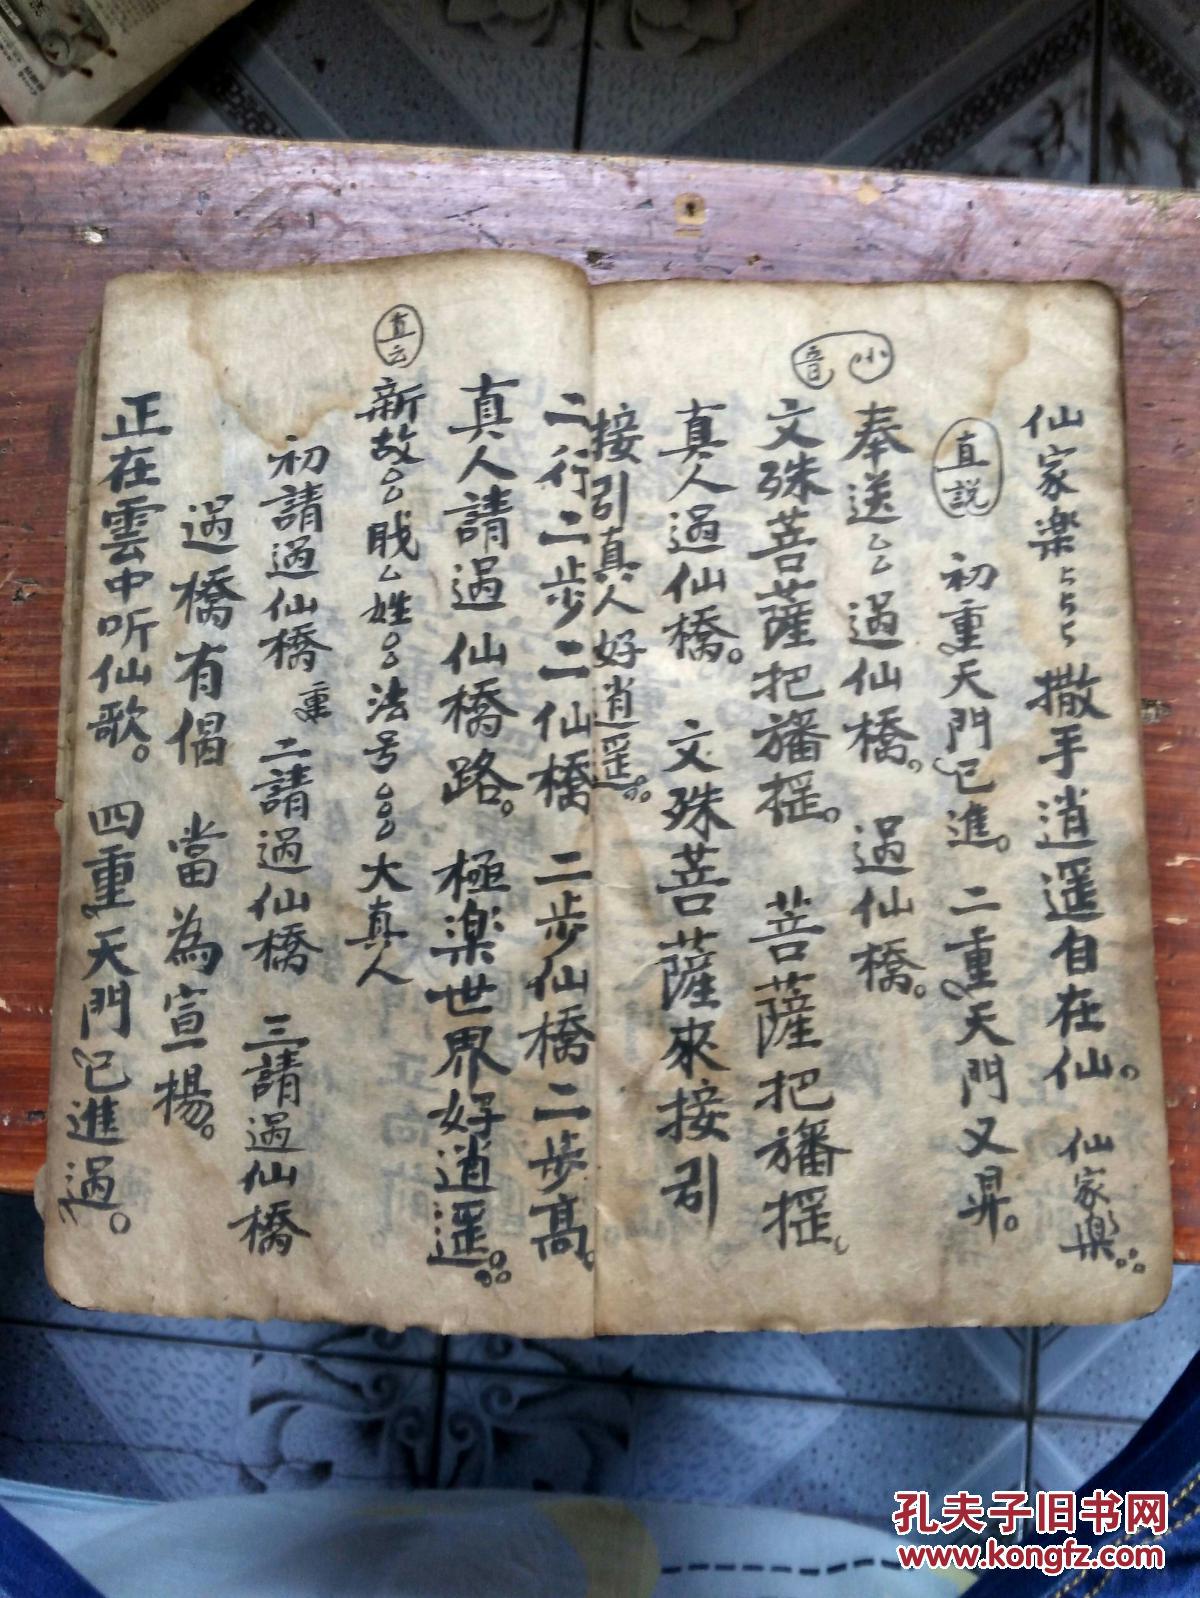 仙家楽 撒手逍遥自在仙。 仙家樂
直説 初重天門已進。二重天門又昇。
小音
奉送 過仙橋。過仙橋。
文殊菩薩把旛摇。 菩薩把旛摇。
真人過仙橋。 文殊菩薩來接引
接引真人好逍遥。
二行二步二仙橋 二步仙橋二步高。
真人請過仙橋路。 極楽世界好逍遥。
直云
新故 姓 法号 大真人
初請過仙橋 重 二請過仙橋 三請過仙橋
過橋有偈 當為宣楊。
正在雲中听仙歌。 四重天門已進過。
孔夫子旧书网
www.kongfz.com